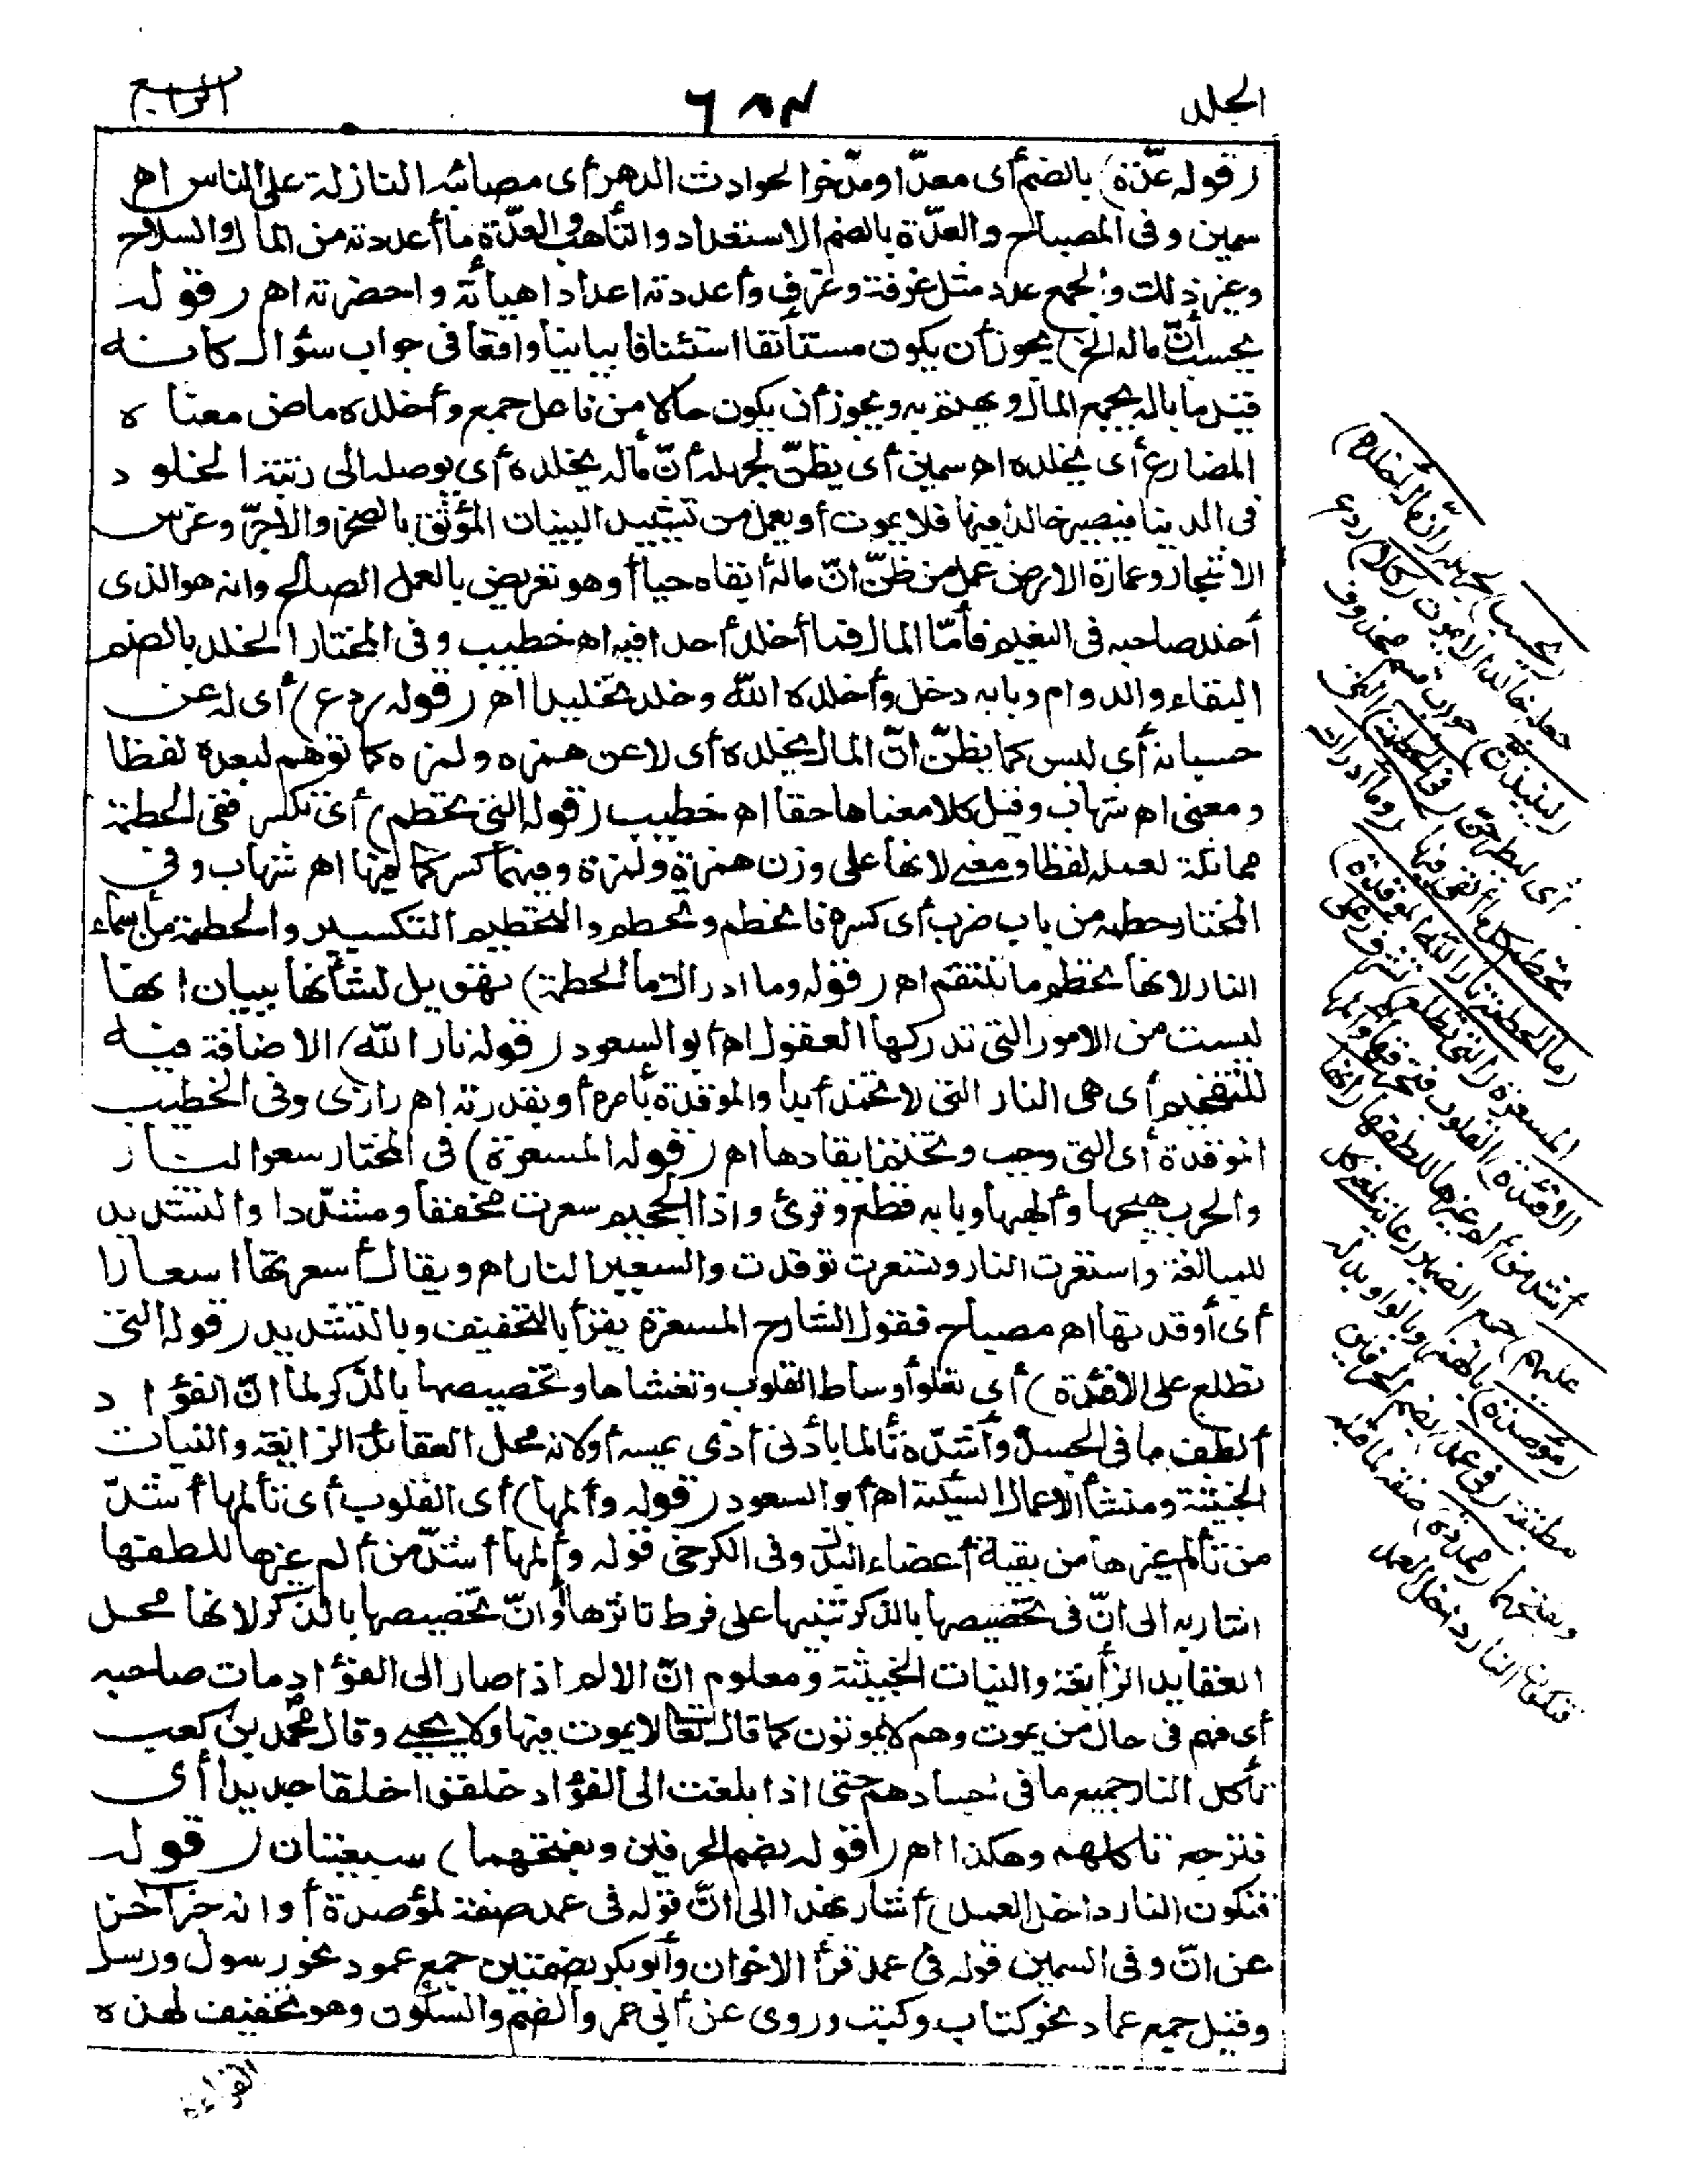 الجلد
٦٨٣
الرابع
(قوله عدّة) بالضم أى معدّا ومدّخرا لحوادث الدهر أى مصائبه النازلة على الناس اه
سمين وفى المصباح والعدّة بالضم الاستعداد والتأهب والعدّة ما أعددته من المال والسلاح
وغير ذلك والجمع عدد مثل غرفة وغرف وأعددته اعدادا هيأته واحضرته اه (قوله
يحسب أنّ ماله الخ) يجوز أن يكون مستأنفا استئنافا بيانيا واقعا فى جواب سؤال كانه
قيل ما باله يجمع المال ويهتم به ويجوز أن يكون حالا من فاعل جمع وأخلده ماض معناه
المضارع أى يخلده اه سمين أى يظنّ لجهله أنّ ماله يخلده أى يوصله الى رتبة الخلود
فى الدنيا فيصير خالدا فيها فلا يموت أو يعمل من تشييد البنيان المؤثق بالصخر والآجرّ وغرس
الاشجار وعمارة الارض عمل من ظنّ انّ ماله أبقاه حيا أو هو تعريض بالعمل الصالح وانه هو الذى
أخلد صاحبه فى النعيم فأمّا المال فما أخلد أحدا فيه اه خطيب وفى المختار الخلد بالضم
البقاء والدوام وبابه دخل وأخلده الله وخلده تخليدا اه (قوله ردع) أى له عن
حسبانه أى ليس كما يظنّ انّ المال يخلده أى لا عن همزه ولمزه كما توهم لبعده لفظا
ومعنى اه شهاب وقيل كلا معناها حقا اه خطيب (قوله التى تحطم) أى تكسر ففى الحطمة
مماثلة لعمله لفظا ومعنى لانها على وزن همزة ولمزة وفيهما كسر كما فيها اه شهاب وفى
المختار حطمه من باب ضرب أى كسره فانحطم وتحطم والتحطيم التكسير والحطمة من أسماء
النار لانها تحطم ما تلتقم اه (قوله وما ادراك ما الحطمة) تهويل لشأنها ببيان انها
ليست من الامور التى تدركها العقول اه أبو السعود (قوله نار الله) الاضافة فيه
للتفخيم أى هى النار التى لا تخمد أبدا والموقدة بأمره أو بقدرته اه رازى وفى الخطيب
الموقدة أى التى وجب وتحتم ايقادها اه (قوله المسعرة) فى المختار سعر النار
والحرب هيجها وألهبها وبابه قطع وقرئ واذا الجحيم سعرت مخففا ومشدّدا والتشديد
للمبالغة واستعرت النار وتسعرت توقدت والسعير النار اه ويقال أسعرتها اسعارا
أى أوقدتها اه مصباح فقول الشارح المسعرة يقرأ بالتخفيف وبالتشديد (قوله التى
تطلع على الافئدة) أى تعلو أوساط القلوب وتغشاها وتخصيصها بالذكر لما انّ الفؤاد
ألطف ما فى الجسد وأشدّه تألما بأدنى أذى يمسه أو لانه محل العقائد الزائغة والنيات
الخبيثة ومنشأ الاعمال السيئة اه أبو السعود (قوله وألمها) أى القلوب أى تألمها أشدّ
من تألم غيرها من بقية أعضاء البدن وفى الكرخى قوله وألمها أشدّ من ألم غيرها للطفها
اشار به الى انّ فى تخصيصها بالذكر تنبيها على فرط تاثرها أو انّ تخصيصها بالذكر لانها محل
العقايد الزائغة والنيات الخبيثة ومعلوم انّ الالم اذا صار الى الفؤاد مات صاحبه
أى فهم فى حال من يموت وهم لا يموتون كما قال تعالى لا يموت فيها ولا يحيى وقال محمد بن كعب
تأكل النار جميع ما فى اجسادهم حتى اذا بلغت الى الفؤاد خلقوا خلقا جديدا أى
فترجع تاكلهم وهكذا اه (قوله بضم الحرفين وبفتحهما) سبعيتان (قوله
فتكون النار داخل العمد) أشار بهذا الى انّ قوله فى عمد صفة لمؤصدة أو انه خبر آخر
عن انّ وفى السمين قوله فى عمد قرأ الاخوان وأبو بكر بضمتين جمع عمود نحو رسول ورسل
وقيل جمع عماد نحو كتاب وكتب وروى عن أبى عمرو الضم والسكون وهو تخفيف لهذه
القراءة
(يحسب) لجهله (أنّ ماله أخلده)
جعله خالدا لا يموت (كلا) ردع
(لينبذن) جواب قسم محذوف
أى ليطرحنّ (فى الحطمة) التى
تحطم كل ما ألقى فيها (وما أدراك
ما الحطمة نار الله الموقدة)
المسعرة (التى تطلع) تشرف (على
الافئدة) القلوب فتحرقها وألمها
أشدّ من ألم غيرها للطفها (انها
عليهم) جمع الضمير رعاية لمعنى كل
(مؤصدة) بالهمز وبالواو بدله
مطبقة (فى عمد) بضم الحرفين
وبفتحهما (ممدّدة) صفة لما قبله
فتكون النار داخل العمد